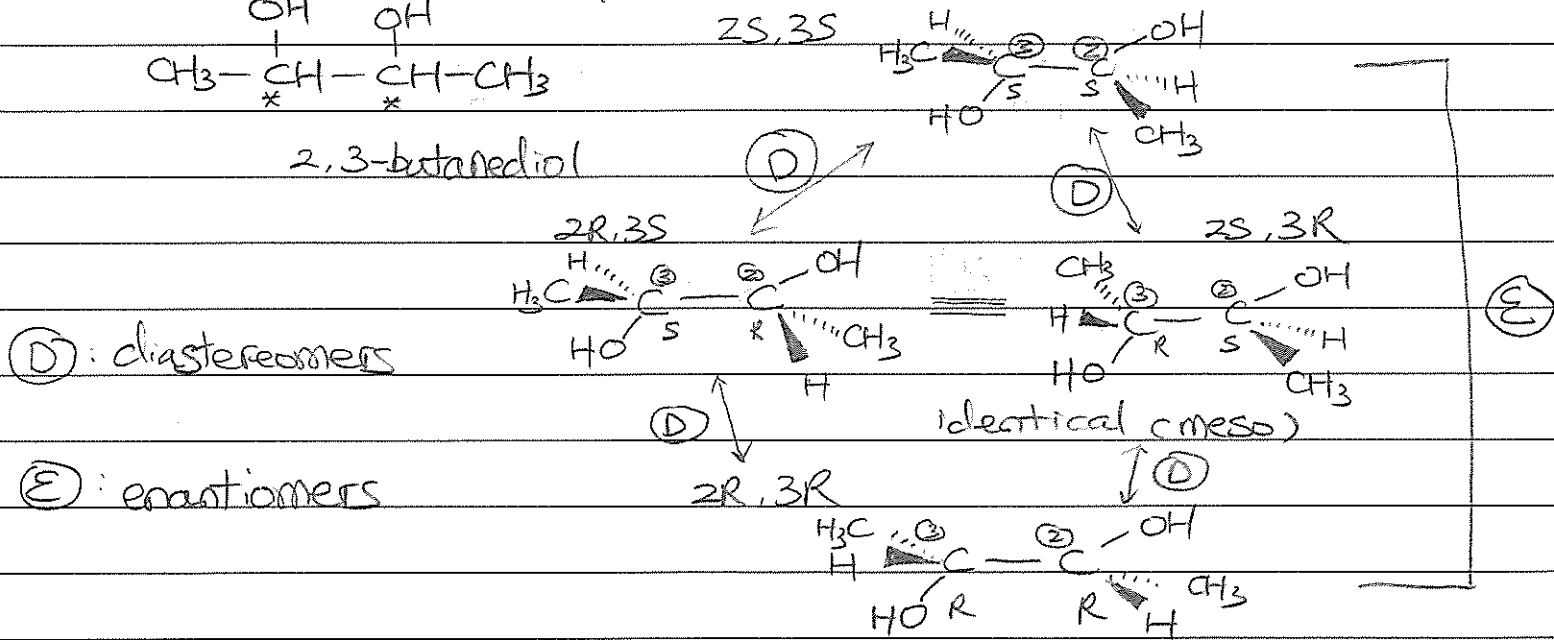 OH OH
CH3 - CH - CH - CH3
* *
2,3-butanediol
2S,3S
H
H3C ③ ② OH
C — C
S S H
HO CH3
D D
2R,3S
H ③ ② OH
H3C C — C
HO S R CH3
H
≡
2S,3R
CH3 ③ ② OH
H C — C
HO R S H
CH3
E
D : diastereomers
identical (meso)
D D
E : enantiomers
2R,3R
H3C ③ ② OH
H C — C
CH3
HO R R H